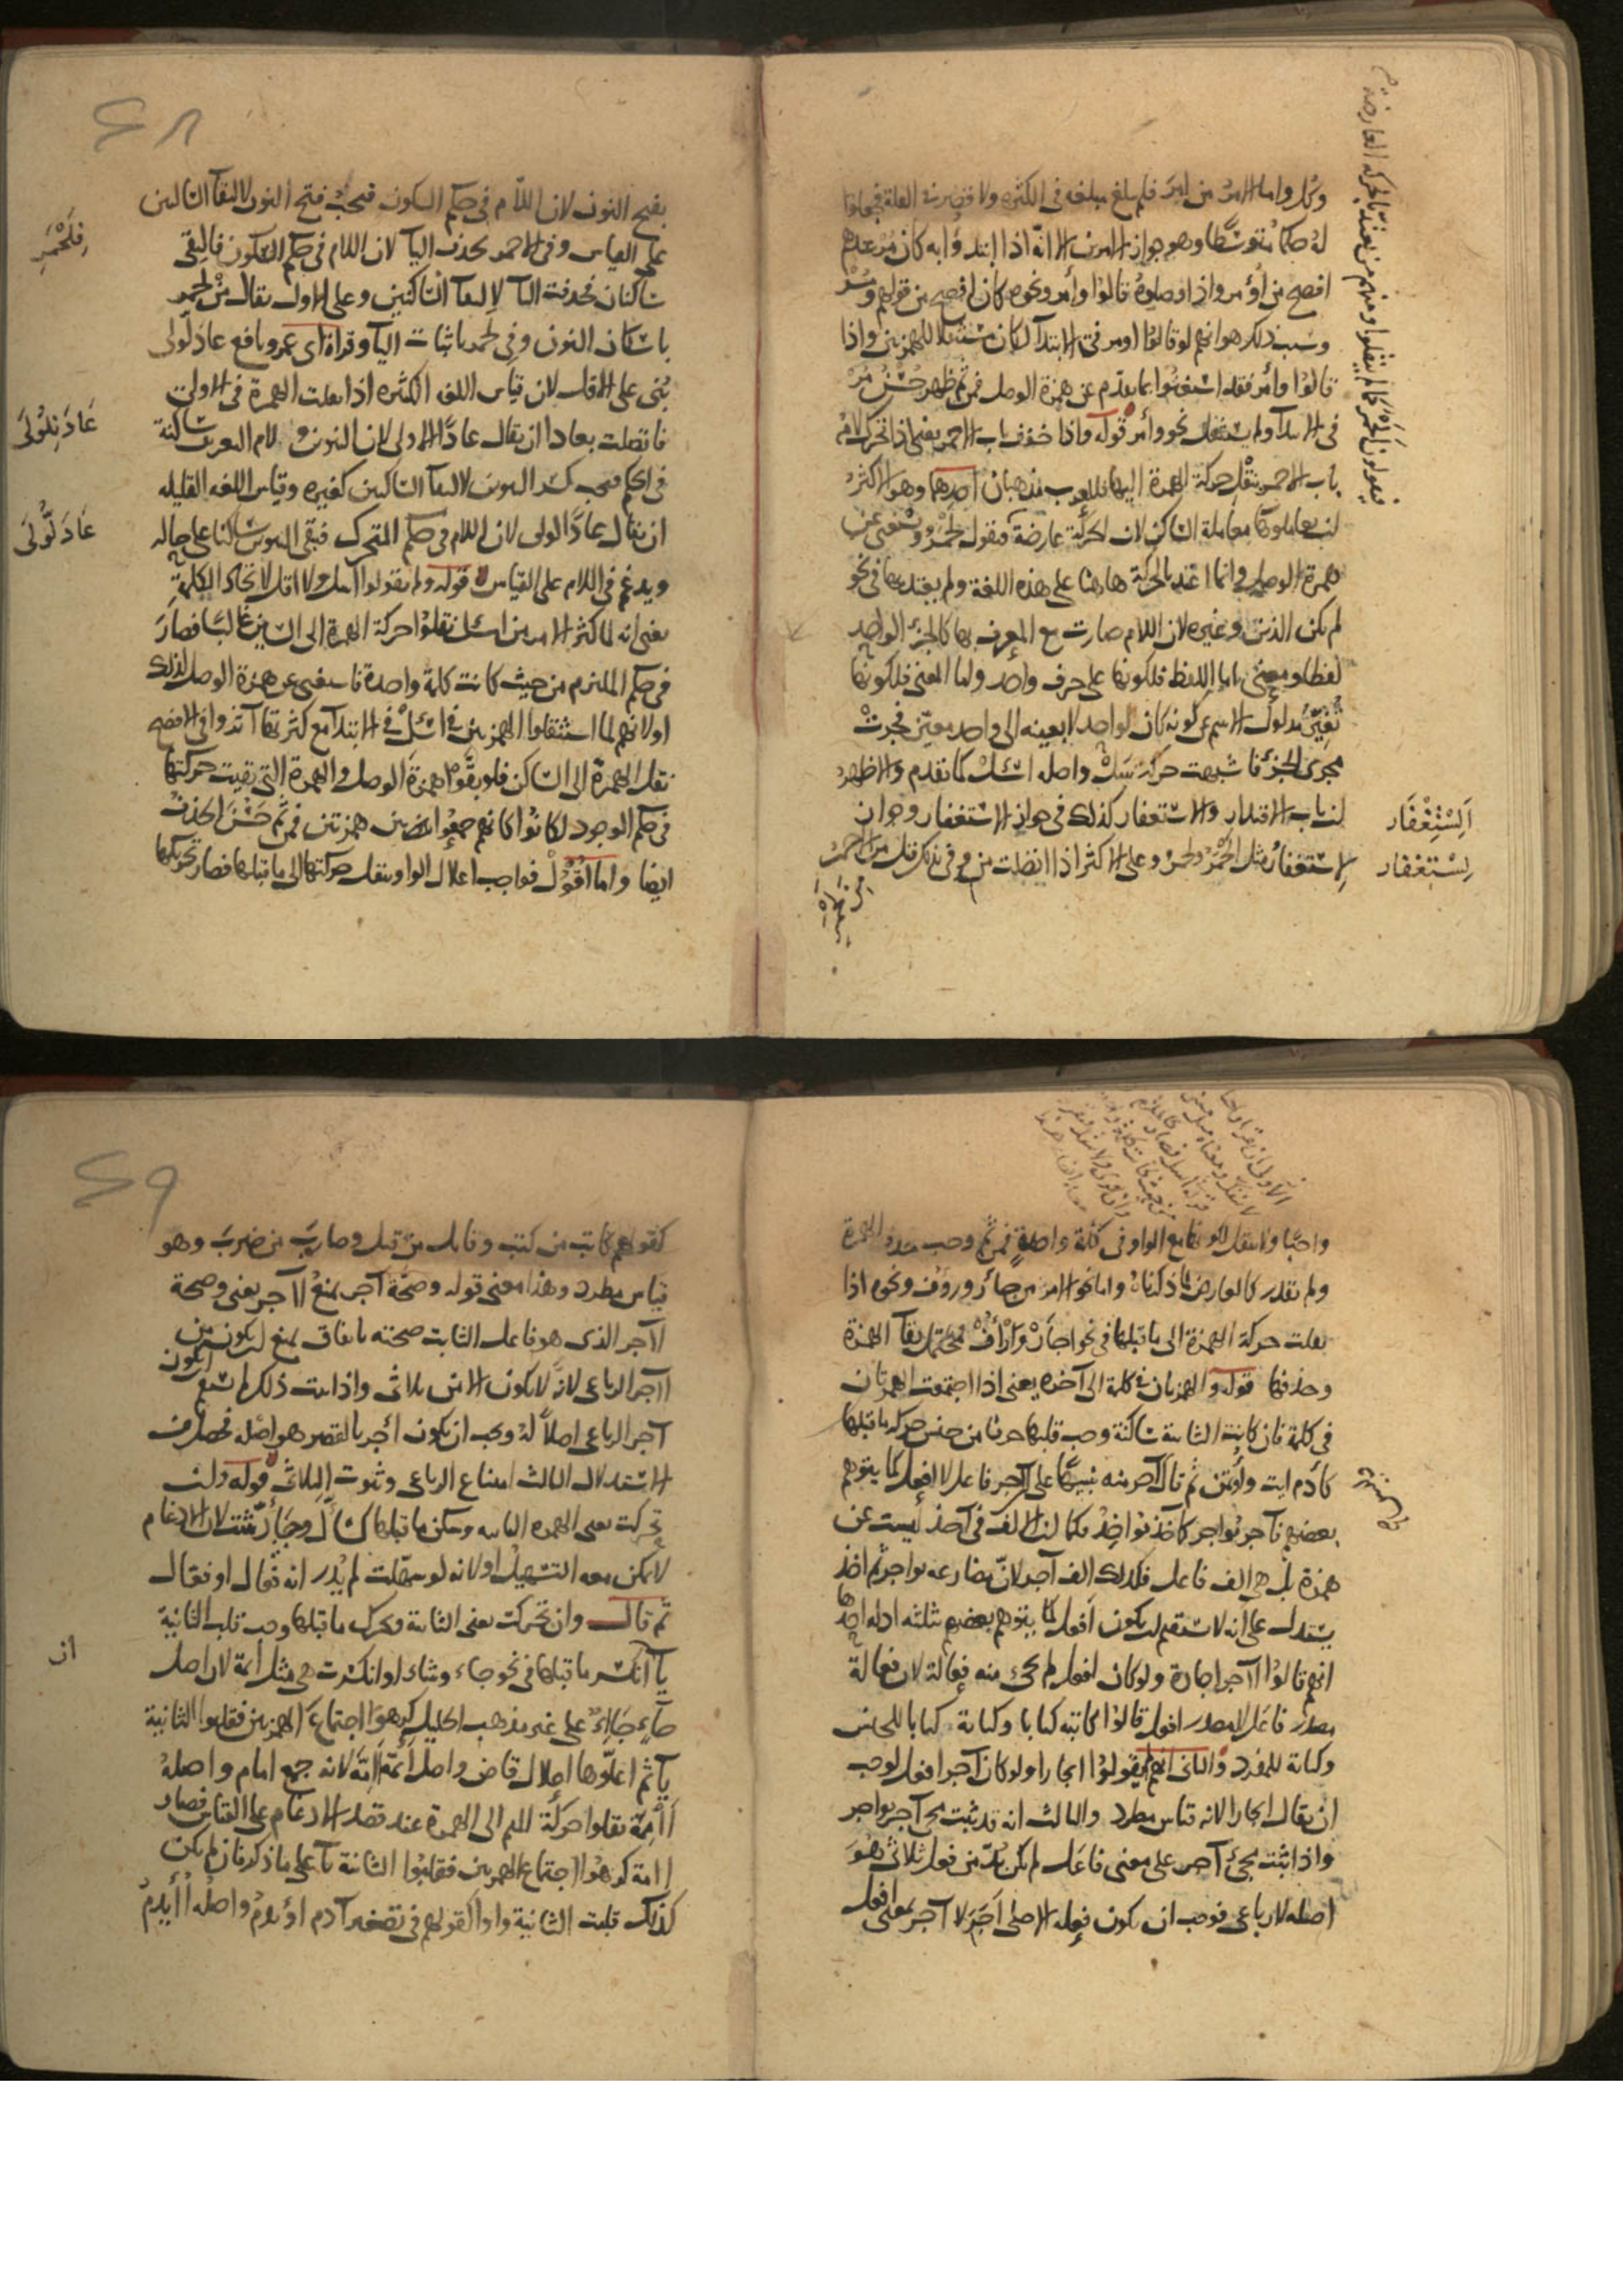 وكل واما الامر من امر فلم يبلغ مبلغه فى الكثرة ولا قصر فى القلة فجعلوا
له حكما متوسطا وهو جواز الامرين الا انه اذا ابتدؤا به كان مر عندهم
افصح من اؤمر واذا وصلوه قالوا وأمر ونحوه كان افصح من قولهم ومر
وسبب ذلك هو انهم لو قالوا اومر فى الابتدآ لكان مستثقلا للهمزتين واذا
قالوا وأمر فقد استغنوا بما تقدم عن همزة الوصل فمن ثم ظهر حسن مر
فى الابتدآ ولم يستثقل نحو وأمر قوله واذا خفف باب الاحمر يعنى اذا تحرك لام
باب الاحمر بنقل حركة الهمزة اليها فللعرب مذهبان احدهما وهو الاكثر
ان يعاملوها معاملة الساكن لان الحركة عارضة فيقول الحمر ويستغنى عن
همزة الوصل وانما اعتد بالحركة هاهنا على هذه اللغة ولم يعتد بها فى نحو
لم يكن الذين وغيره لان اللام صارت مع المعرف بها كالجزء الواحد
لفظا ومعنى اما اللفظ فلكونها على حرف واحد واما المعنى فلكونها
تغير مدلول الاسم عن كونه كان لواحد لا بعينه الى واحد معين فجرت
مجرى الجزء فاشبهت حركة سل واصله اسئل كما تقدم والاظهر
ان باب الاقتدار والاستغفار كذلك فى جواز الاستغفار وجواز
لستغفار مثل الحمر ولحمر وعلى الاكثر اذا اتصلت من وفى بذلك قلت من الحمر
فيقولون الحمر كما لم ينقلوا ومنهم من يعتد بالحركة العارضة
السْتِغْفَار
لِسْتِغْفار
بفتح النون لان اللام فى حكم السكون فيجب فتح النون لالتقآ الساكنين
على القياس وفى الاحمر بحذف اليآ لان اللام فى حكم السكون فالتقى
ساكنان فحذفت اليآ لالتقآ الساكنين وعلى الاول يقال من لحمر
باسكان النون وفى لحمر باثبات اليآ وقراة ابى عمرو ونافع عاد لولى
بنى على الاقل لان قياس اللغة الكثيرة اذا نقلت الهمزة فى الاولى
فاتصلت بعادا ان يقال عادا الاولى لان النون ولام التعريف ساكنة
فى الحكم فيجب كسر النون لالتقآ الساكنين كغيره وقياس اللغة القليلة
ان يقال عادا لولى لان اللام فى حكم المتحرك فبقى النون ساكنا على حاله
ويدغم فى اللام على القياس قوله ولم يقولوا اسل ولا اقل لاتحاد الكلمة
يعنى انه لما كثر الامر من اسئل نقلوا حركة الهمزة الى السين غالبا فصار
فى حكم الملتزم من حيث كانت كلمة واحدة فاستغنى عن همزة الوصل لذلك
اولانهم لما استثقلوا الهمزتين فى اسئل فى الابتدآ مع كثرتها آثروا فى الافصح
نقل الهمزة الى الساكن فلو بقوا همزة الوصل والهمزة التى بقيت حركتها
فى حكم الوجود لكانوا كانهم جمعوا بين همزتين فمن ثم حسن الحذف
ايضا واما اقوول فواجب اعلال الواو بنقل حركتها الى ما قبلها فصار تحريكها
فِلَحْمَرِ
عَادَ نِلُولَى
عَادَ لُّولَى
٢٨
واجبا ولانتقل لكونها مع الواو فى كلمة واحدة فمن ثم وجب حذف الهمزة
ولم يقدر كالعارض لما ذكرناه واما نحو الامر من جائر ورووف ونحوه اذا
نقلت حركة الهمزة الى ما قبلها فى نحو اجأر وارأف فيحتمل بقآ الهمزة
وحذفها قوله والهمزتان فى كلمة الى آخره يعنى اذا اجتمعت الهمزتان
فى كلمة فان كانت الثانية ساكنة وجب قلبها حرفا من جنس حركة ما قبلها
كآدم ايت وأوتمن ثم قال آجر منه تنبيها على آجر فاعل لا افعل كما يتوهم
بعضهم فآجر يؤاجر كآخذ يؤاخذ فكما ان الالف فى آخذ ليست عن
همزة بل هى الف فاعل فكذلك الف آجر لان مضارعه يواجر ثم اخذ
يستدل على انه لا يستقيم ان يكون افعل كما يتوهم بعضهم بثلثة ادلة احدها
انهم قالوا آجر اجارة ولو كان افعل لم يجئ منه فعالة لان فعالة
مصدر فاعل لا مصدر افعل قالوا كاتبه كتابا وكتابة كتابا للجنس
وكتابة للمفرد والثانى انهم لم يقولوا ايجارا ولو كان آجر افعل لوجب
ان يقال ايجارا لانه قياس مطرد والثالث انه قد ثبت مجئ آجر يواجر
واذا ثبت مجئ آجر على معنى فاعل لم يكن بد من فعل ثلاثى هو
اصله لا رباعى فوجب ان يكون فعله الاصلى اجر لا آجر بمعنى افعل
كقولهم كاتب من كتب وقاتل من قتل وضارب من ضرب وهو
قياس مطرد وهذا معنى قوله وصحة آجر يمنع اآجر يعنى وصحة
اآجر الذى هو فاعل الثابت صحته باتفاق يمنع ان يكون من
اآجر الرباعى لانه لا يكون الا من ثلاثى واذا ثبت ذلك امتنع ان يكون
آجر الرباعى اصلا له ويجب ان يكون أجر بالقصر هو اصله فحصل من
الاستدلال الثالث امتناع الرباعى وثبوت الثلاثى قوله وان
تحركت يعنى الهمزة الثانية وسكن ما قبلها كسأال وجأار تثبت لان الادغام
لا يمكن معه التسهيل او لانه لو سهلت لم يدر انه فعال او فوعال
ثم قال وان تحركت يعنى الثانية وتحرك ما قبلها وجب قلب الثانية
يآ ان كسر ما قبلها فى نحو جاء وشاء او انكسرت هى مثل ائمة لان اصل
جآء جاءئ على غير مذهب الخليل كرهوا اجتماع الهمزتين فقلبوا الثانية
يآ ثم اعلوها اعلال قاض واصل ائمة أاممة لانه جمع امام واصله
أأممة نقلوا حركة الميم الى الهمزة عند قصد الادغام على القياس فصار
اامة كرهوا اجتماع الهمزتين فقلبوا الثانية يآ على ما ذكر فان لم يكن
كذلك قلبت الثانية واوا كقولهم فى تصغير آدم اويدم واصله أأيدم
ان
٢٩